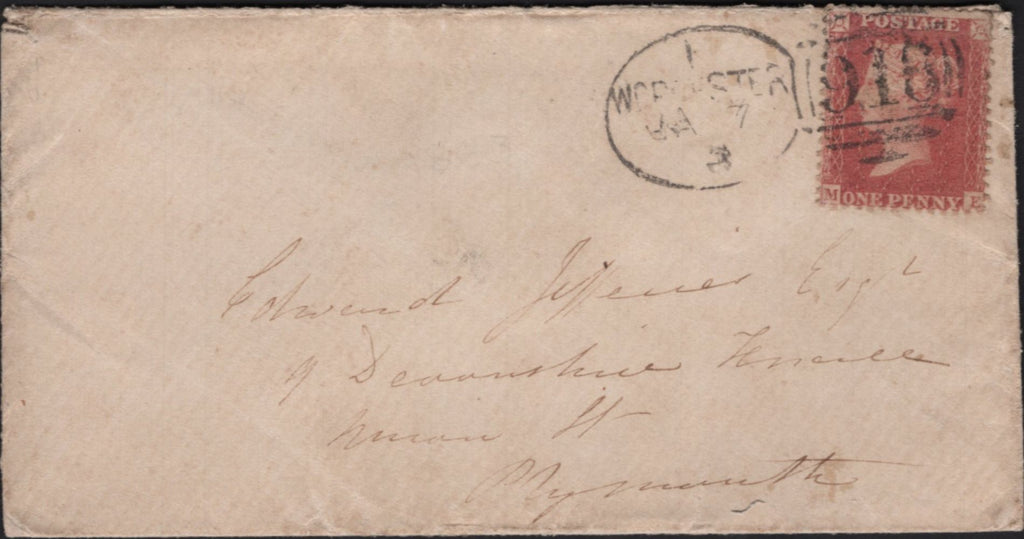 1
WORCESTER
JA 7
3
918
POSTAGE
M ONE PENNY E
Edward Jefferies Esqr
9 Devonshire Terrace
Union St
Plymouth